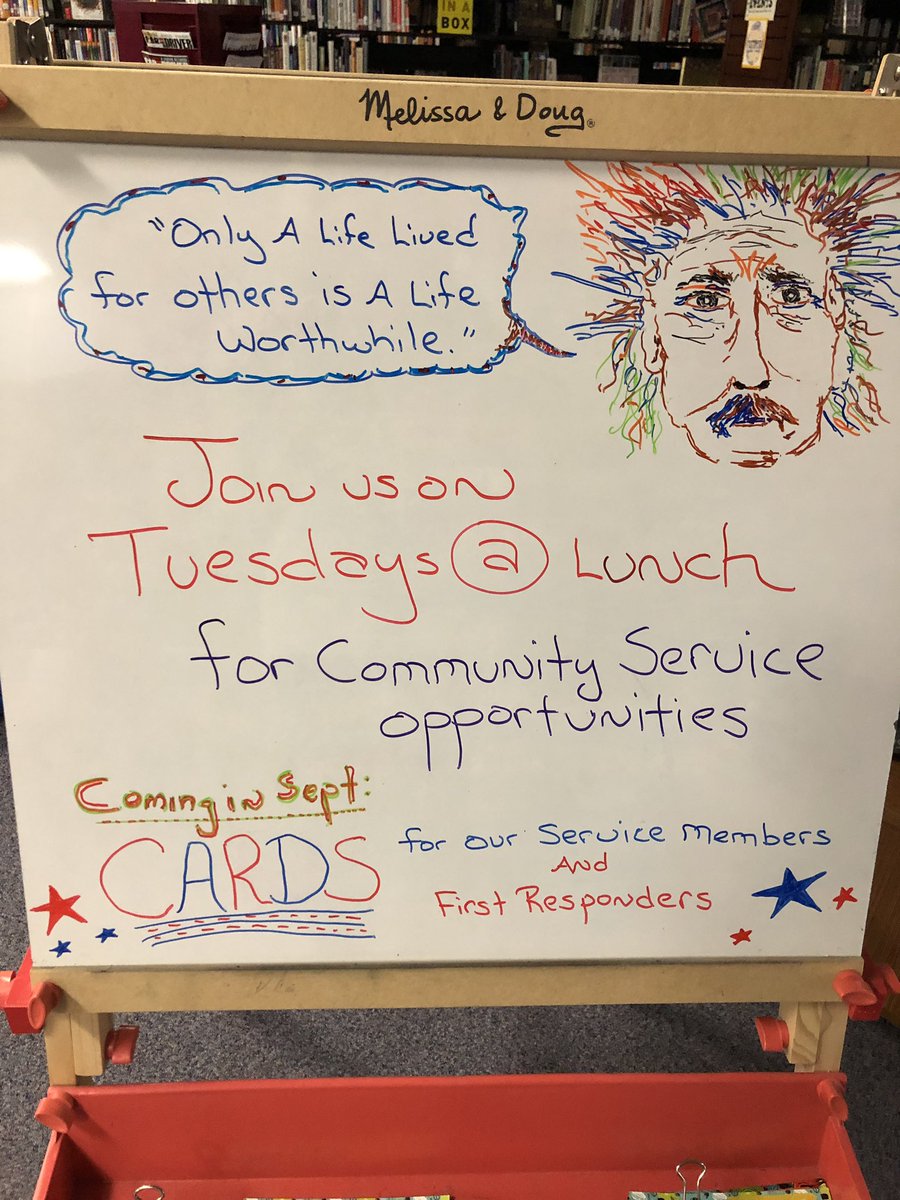 IN A
BOX
Melissa & Doug®
"Only A Life Lived
for others is A Life
Worthwhile."
Join us on
Tuesdays @ Lunch
for Community Service
opportunities
Coming in Sept:
CARDS for our Service Members
And
First Responders